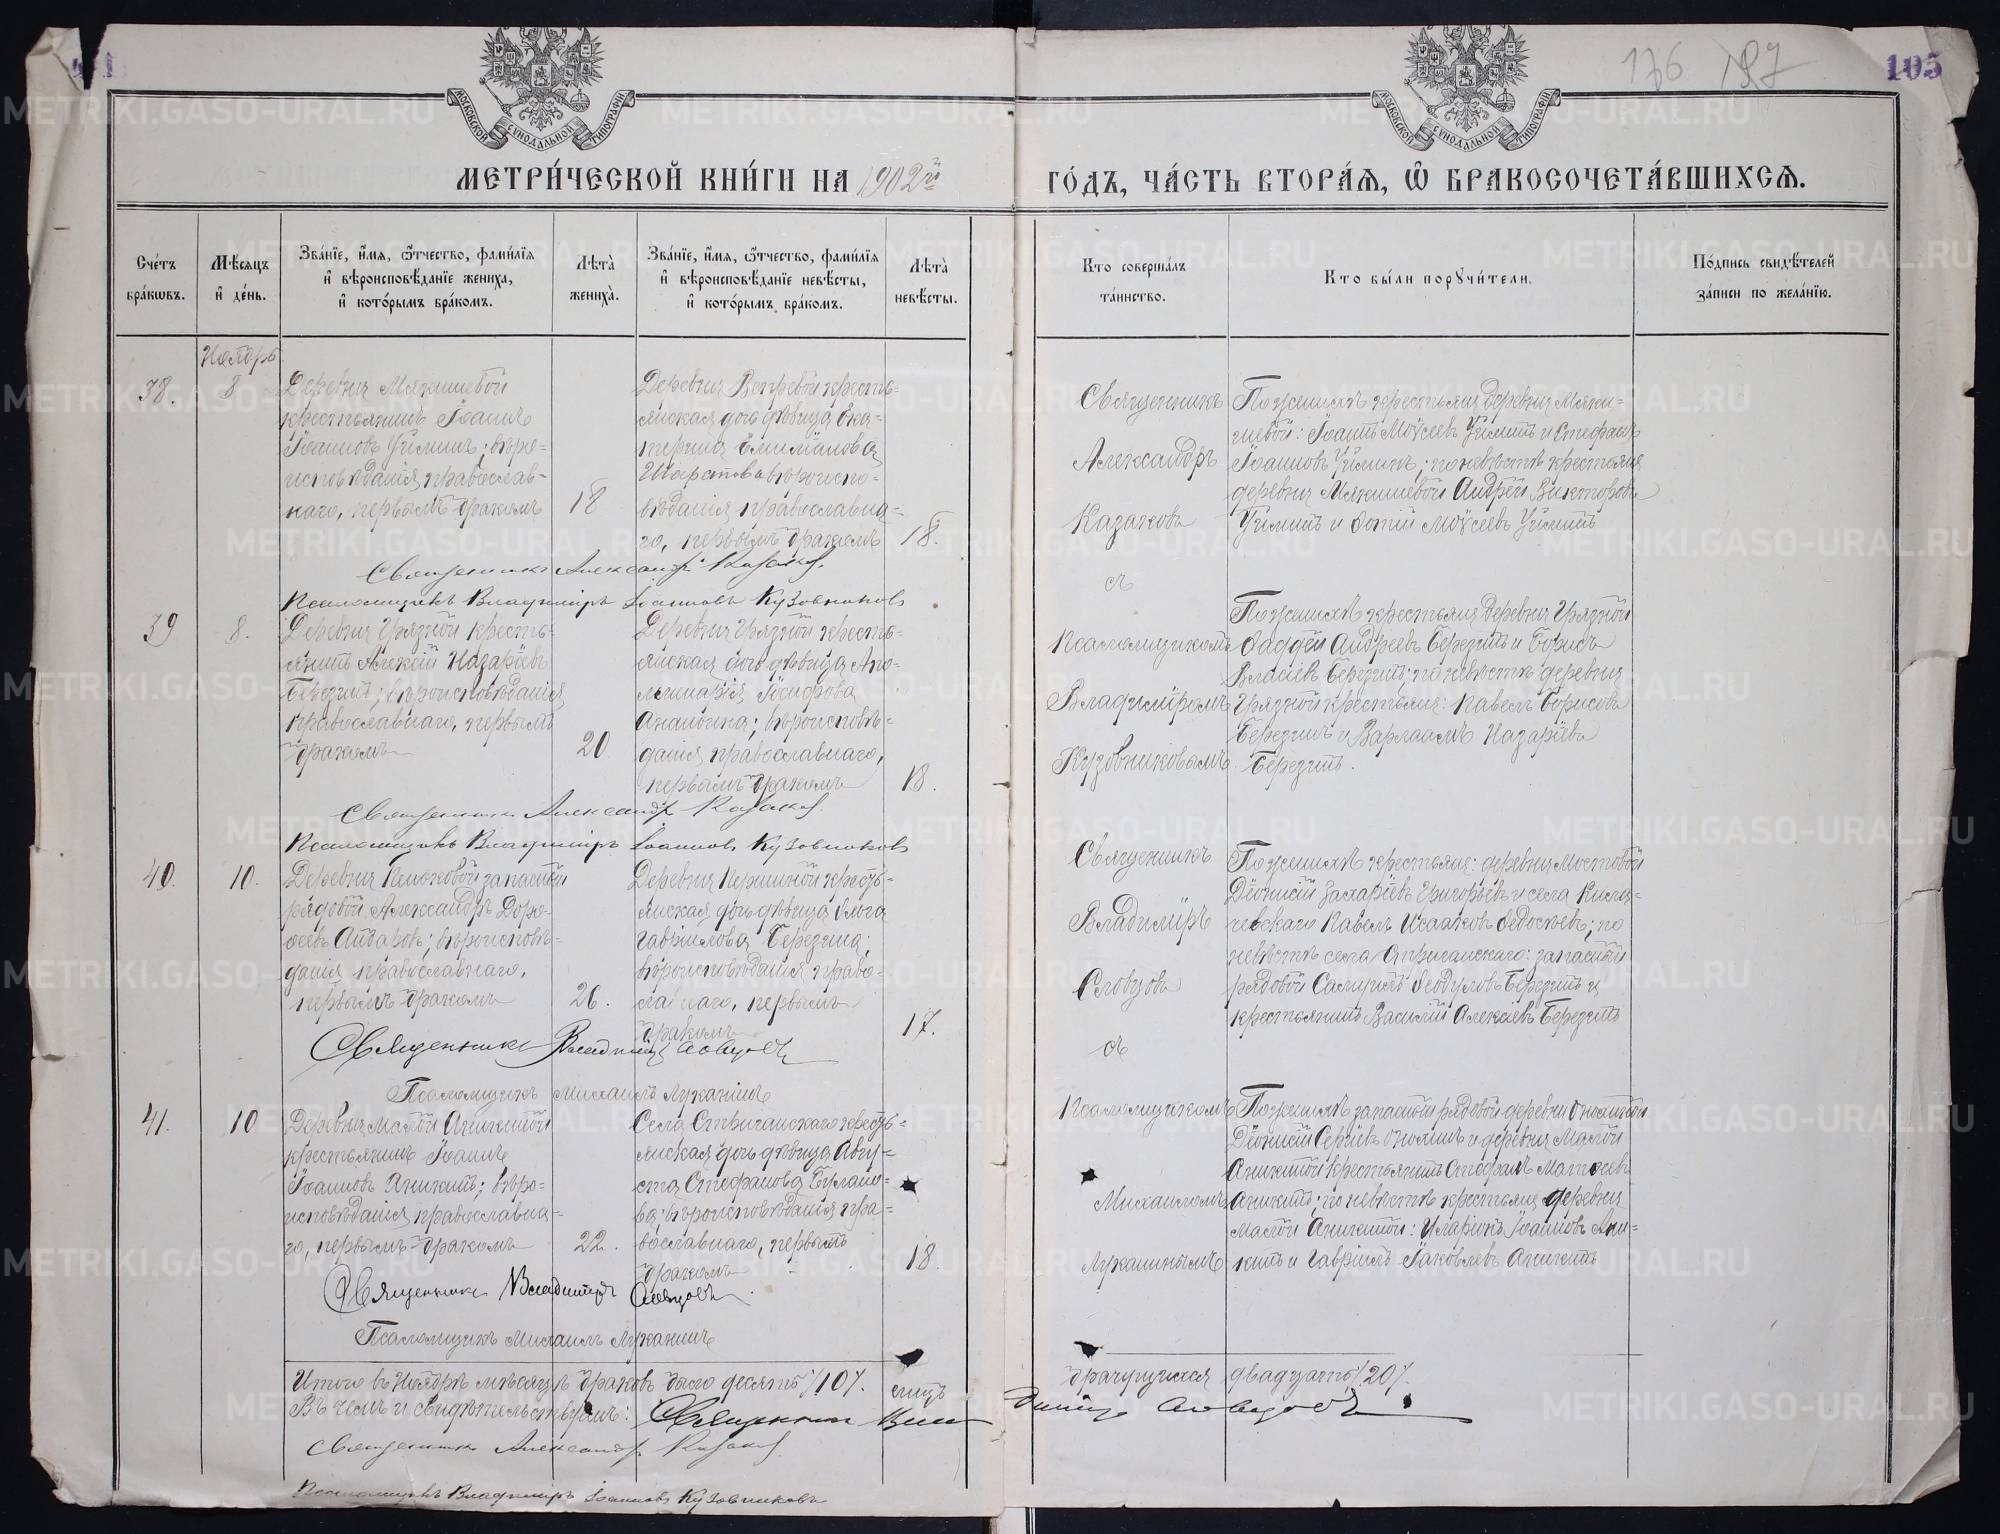 105
176 197
МОСКОВСКОЙ СѴНОДАЛЬНОЙ ТИПОГРАФІИ
МОСКОВСКОЙ СѴНОДАЛЬНОЙ ТИПОГРАФІИ
МЕТРИ́ЧЕСКОЙ КНИ́ГИ НА 1902й ГО́ДЪ, ЧА́СТЬ ВТОРА́Я, Ѡ БРАКОСОЧЕТА́ВШИХСЯ.
Сче́тъ бра́кѡвъ.
Мѣ́сяцъ и де́нь.
Зва́нїе, и́мя, ѻ҆́тчество, фами́лїя и вѣроисповѣ́данїе жениха̀, и кото́рымъ бра́комъ.
Лѣта̀ жениха̀.
Зва́нїе, и́мя, ѻ҆́тчество, фами́лїя и вѣроисповѣ́данїе невѣ́сты, и кото́рымъ бра́комъ.
Лѣта̀ невѣ́сты.
Кто соверша́лъ та́инство.
Кто бы́ли порꙋчи́тели.
По́дпись свидѣ́телей за́писи по жела́нїю.
Ноябрь
38.
8
Деревни Мякишевой
крестьянинъ Іоаннъ
Іоанновъ Уйминъ; вѣро-
исповѣданія православ-
наго, первымъ бракомъ
18
Деревни Ветревой кресть-
янская дочь дѣвица Ека-
терина Емиліанова
вѣроиспо-
вѣданія православна-
го, первымъ бракомъ
18.
Священникъ
Александръ
Казаковъ
съ
Псаломщикомъ
Владиміромъ
Кузовниковымъ
По женихѣ крестьяне деревни Мяки-
шевой: Іоаннъ Моѵсеевъ Уйминъ и Стефанъ
Іоанновъ Уйминъ; по невѣстѣ крестьяне
деревни Мякишевой Андрей Викторовъ
Уйминъ и Фотій Моѵсеевъ Уйминъ
Священникъ Александръ Казаковъ.
Псаломщикъ Владиміръ Іоанновъ Кузовниковъ
39
8.
Деревни Грязной кресть-
янинъ Алексій Назаріевъ
Березинъ; вѣроисповѣданія
православнаго, первымъ
бракомъ
20
Деревни Грязной кресть-
янская дочь дѣвица Апо-
линарія Іосифова
Ананьина; вѣроисповѣ-
данія православнаго,
первымъ бракомъ
18.
По женихѣ крестьяне деревни Грязной
Фаддей Андреевъ Березинъ и Борисъ
Власіевъ Березинъ; по невѣстѣ деревни
Грязной крестьяне: Павелъ Борисовъ
Березинъ и Варлаамъ Назаріевъ
Березинъ.
Священникъ Александръ Казаковъ.
Псаломщикъ Владиміръ Іоанновъ Кузовниковъ
40.
10.
Деревни запасный
рядовой Александръ Доро-
ѳеевъ Айваровъ; вѣроисповѣ-
данія православнаго,
первымъ бракомъ
26.
Деревни Першиной кресть-
янская дочь дѣвица Ольга
Гавріилова Березина;
вѣроисповѣданія право-
славнаго, первымъ
бракомъ
17.
Священникъ
Владиміръ
Словцовъ
съ
Псаломщикомъ
Михаиломъ
Лукашинымъ
По женихѣ крестьяне: деревни Мостовой
Діонисій Захаріевъ Григорьевъ и села Кисло-
чевскаго Павелъ Исааковъ Федосѣевъ; по
невѣстѣ села Стриганскаго: запасный
рядовой Самуилъ Феодуловъ Березинъ и
крестьянинъ Василій Алексіевъ Березинъ
Священникъ Владиміръ Словцовъ
Псаломщикъ Михаилъ Лукашинъ
41.
10
Деревни Малой Аникиной
крестьянинъ Іоаннъ
Іоанновъ Аникинъ; вѣро-
исповѣданія православна-
го, первымъ бракомъ
22.
Села Стриганскаго кресть-
янская дочь дѣвица Авгу-
ста Стефанова Булано-
ва; вѣроисповѣданія пра-
вославнаго, первымъ
бракомъ
18.
По женихѣ запасный рядовой деревни
Діонисій Сергіевъ и деревни Малой
Аникиной крестьянинъ Стефанъ Матѳеевъ
Аникинъ; по невѣстѣ крестьяне деревни
Малой Аникиной: Иларіонъ Іоанновъ Ани-
кинъ и Гавріилъ Іаковлевъ Аникинъ
Священникъ Владиміръ Словцовъ
Псаломщикъ Михаилъ Лукашинъ
Итого въ Ноябрѣ мѣсяцѣ браковъ было десять /10/. лицъ брачущихся двадцать /20/.
Въ чемъ и свидѣтельствуемъ: Священникъ Владиміръ Словцовъ
Священникъ Александръ Казаковъ
Псаломщикъ Владиміръ Іоанновъ Кузовниковъ
METRIKI.GASO-URAL.RU